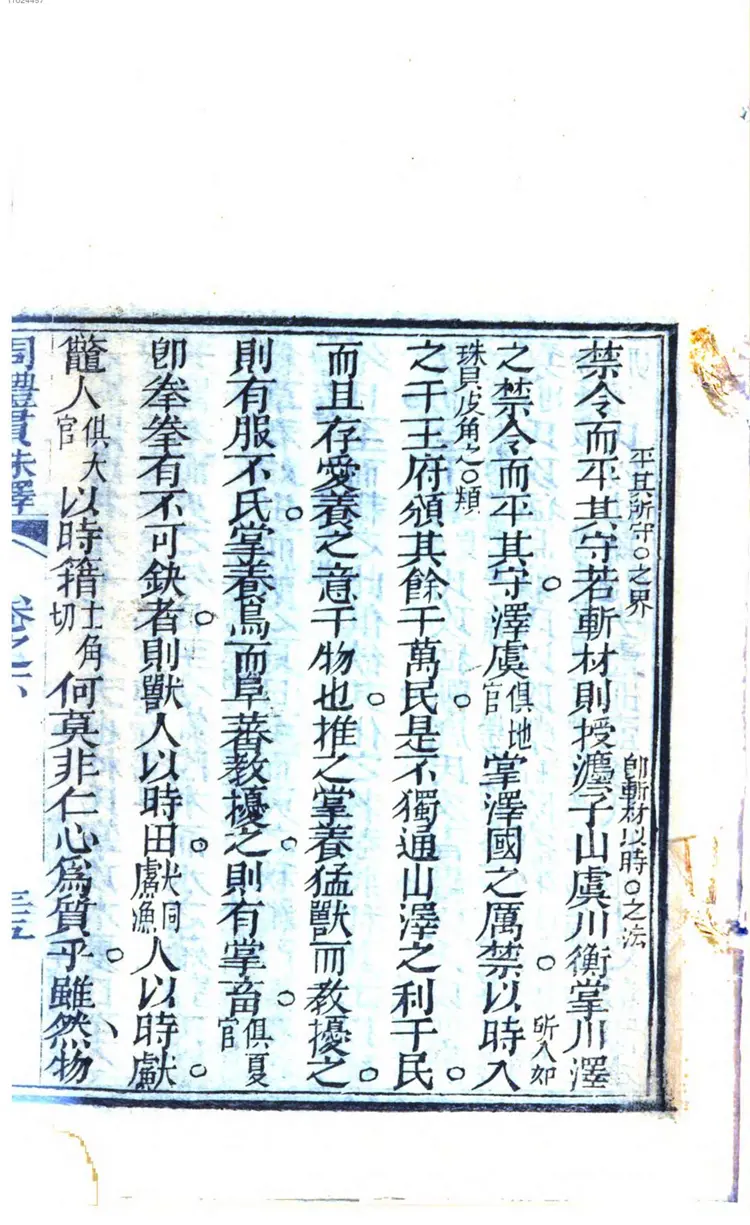 11024497
平其所守○之界
卽斬材以時○之法
禁令而平其守若斬材則授灋于山虞川衡掌川澤
之禁令而平其守澤虞俱地官掌澤國之厲禁以時入所入如
珠貝皮角之○類
之于王府頒其餘于萬民是不獨通山澤之利于民
而且存愛養之意于物也推之掌養猛獸而教擾之
則有服不氏掌養鳥而阜蕃教擾之則有掌畜俱夏官
卽拳拳有不可缺者則獸人以時田獻獸同漁人以時獻
鼈人俱天官以時籍士角切何莫非仁心爲質乎雖然物
周禮貫珠釋
卷之六
三五